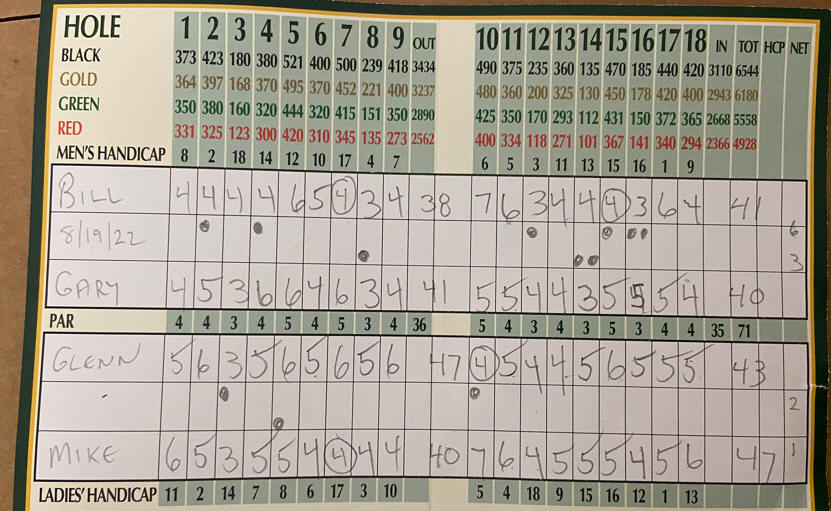 HOLE 1 2 3 4 5 6 7 8 9 OUT 10 11 12 13 14 15 16 17 18 IN TOT HCP NET
BLACK 373 423 180 380 521 400 500 239 418 3434 490 375 235 360 135 470 185 440 420 3110 6544
GOLD 364 397 168 370 495 370 452 221 400 3237 480 360 200 325 130 450 178 420 400 2943 6180
GREEN 350 380 160 320 444 320 415 151 350 2890 425 350 170 293 112 431 150 372 365 2668 5558
RED 331 325 123 300 420 310 345 135 273 2562 400 334 118 271 101 367 141 340 294 2366 4928
MEN'S HANDICAP 8 2 18 14 12 10 17 4 7 6 5 3 11 13 15 16 1 9
BILL 4 4 4 4 6 5 4 3 4 38 7 6 3 4 4 4 3 6 4 41
8/19/22 6
3
GARY 4 5 3 6 6 4 6 3 4 41 5 5 4 4 3 5 5 5 4 40
PAR 4 4 3 4 5 4 5 3 4 36 5 4 3 4 3 5 3 4 4 35 71
GLENN 5 6 3 5 6 5 6 5 6 47 4 5 4 4 5 6 5 5 5 43
2
MIKE 6 5 3 5 5 4 4 4 4 40 7 6 4 5 5 5 4 5 6 47 1
LADIES' HANDICAP 11 2 14 7 8 6 17 3 10 5 4 18 9 15 16 12 1 13